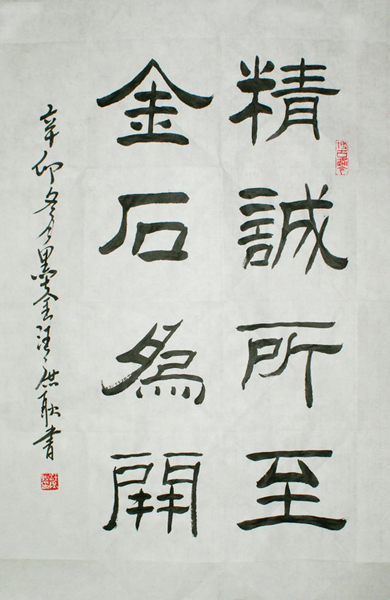 精誠所至
金石為開
辛卯冬月墨金汪洪耿書